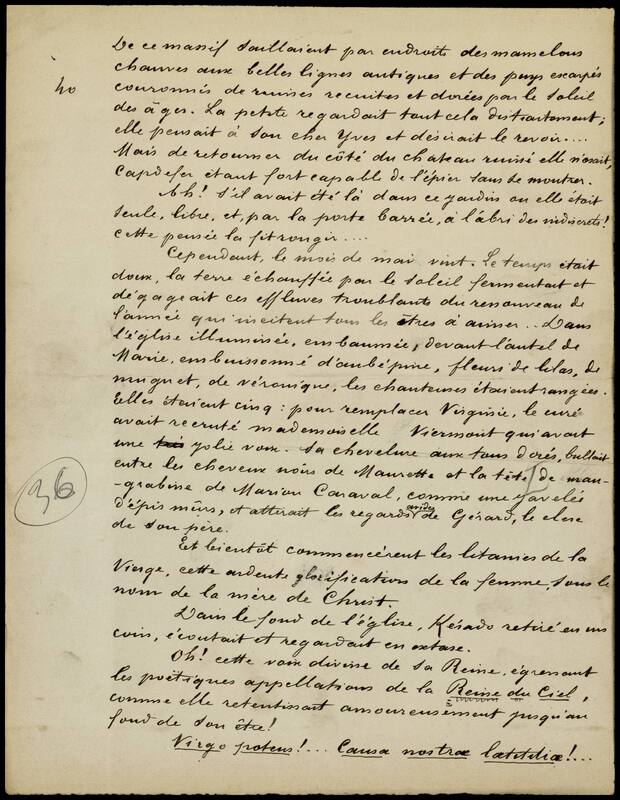 De ce massif saillaient par endroits des mamelons
40
chauves aux belles lignes antiques et des puys escarpés
couronnés de ruines recuites et dorées par le soleil
des âges. La petite regardait tout cela distraitement;
elle pensait à son cher Yves et désirait le revoir....
Mais de retourner du côté du chateau ruiné elle n'osait,
Capdefer étant fort capable de l'épier sans se montrer.
Ah! S'il avait été là dans ce jardin où elle était
seule, libre, et, par la porte barrée, à l'âbri des indiscrets!
Cette pensée la fit rougir....
Cependant, le mois de mai vint. Le temps était
doux, la terre échauffée par le soleil fermentait et
dégageait ces effluves troublants du renouveau de
l'année qui incitent tous les êtres à aimer.. Dans
l'église illuminée, embaumée, devant l'autel de
Marie, embuissonné d'aubépine, fleurs de lilas, de
muguet, de véronique, les chanteuses étaient rangées.
Elles étaient cinq: pour remplacer Virginie, le curé
avait recruté mademoiselle Viermont qui avait
une jolie voix. Sa chevelure aux tons dorés, brillait
entre les cheveux noirs de Maurette et la tête de mau-
-grabine de Marion Caraval, comme une javelée
d'épis mûrs, et attirait les regards avides de Gérard, le clerc
de son père.
36
Et bientôt commencèrent les litanies de la
Vierge, cette ardente glorification de la femme, sous le
nom de la mère de Christ.
Dans le fond de l'église, Kérado retiré en un
coin, écoutait et regardait en extase.
Oh! cette voix divine de sa Reine, égrenant
les poëtiques appellations de la Reine du Ciel,
comme elle retentissait amoureusement jusqu'au
fond de son être!
Virgo potens!... Causa nostræ lætitiæ!...